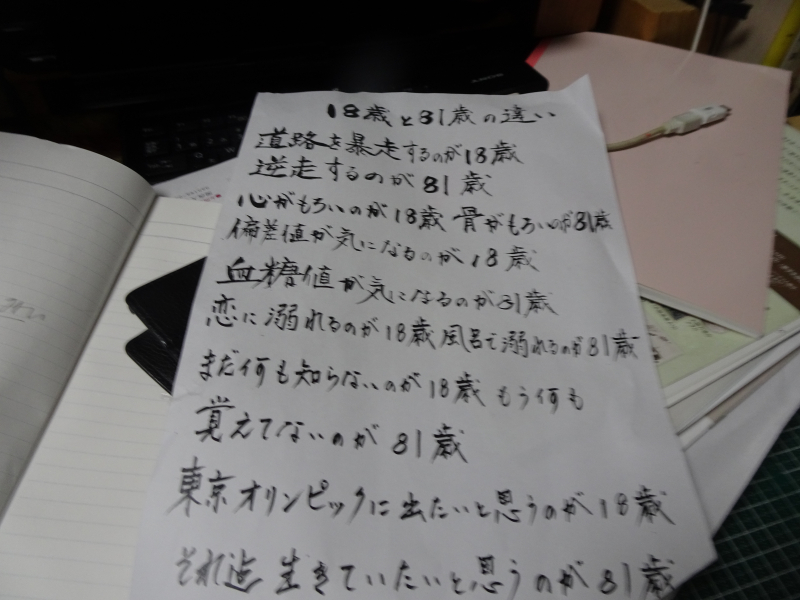 18歳と81歳の違い
道路を暴走するのが18歳
逆走するのが81歳
心がもろいのが18歳 骨がもろいのが81歳
偏差値が気になるのが18歳
血糖値が気になるのが81歳
恋に溺れるのが18歳 風呂で溺れるのが81歳
まだ何も知らないのが18歳 もう何も
覚えてないのが81歳
東京オリンピックに出たいと思うのが18歳
それ迄生きていたいと思うのが81歳